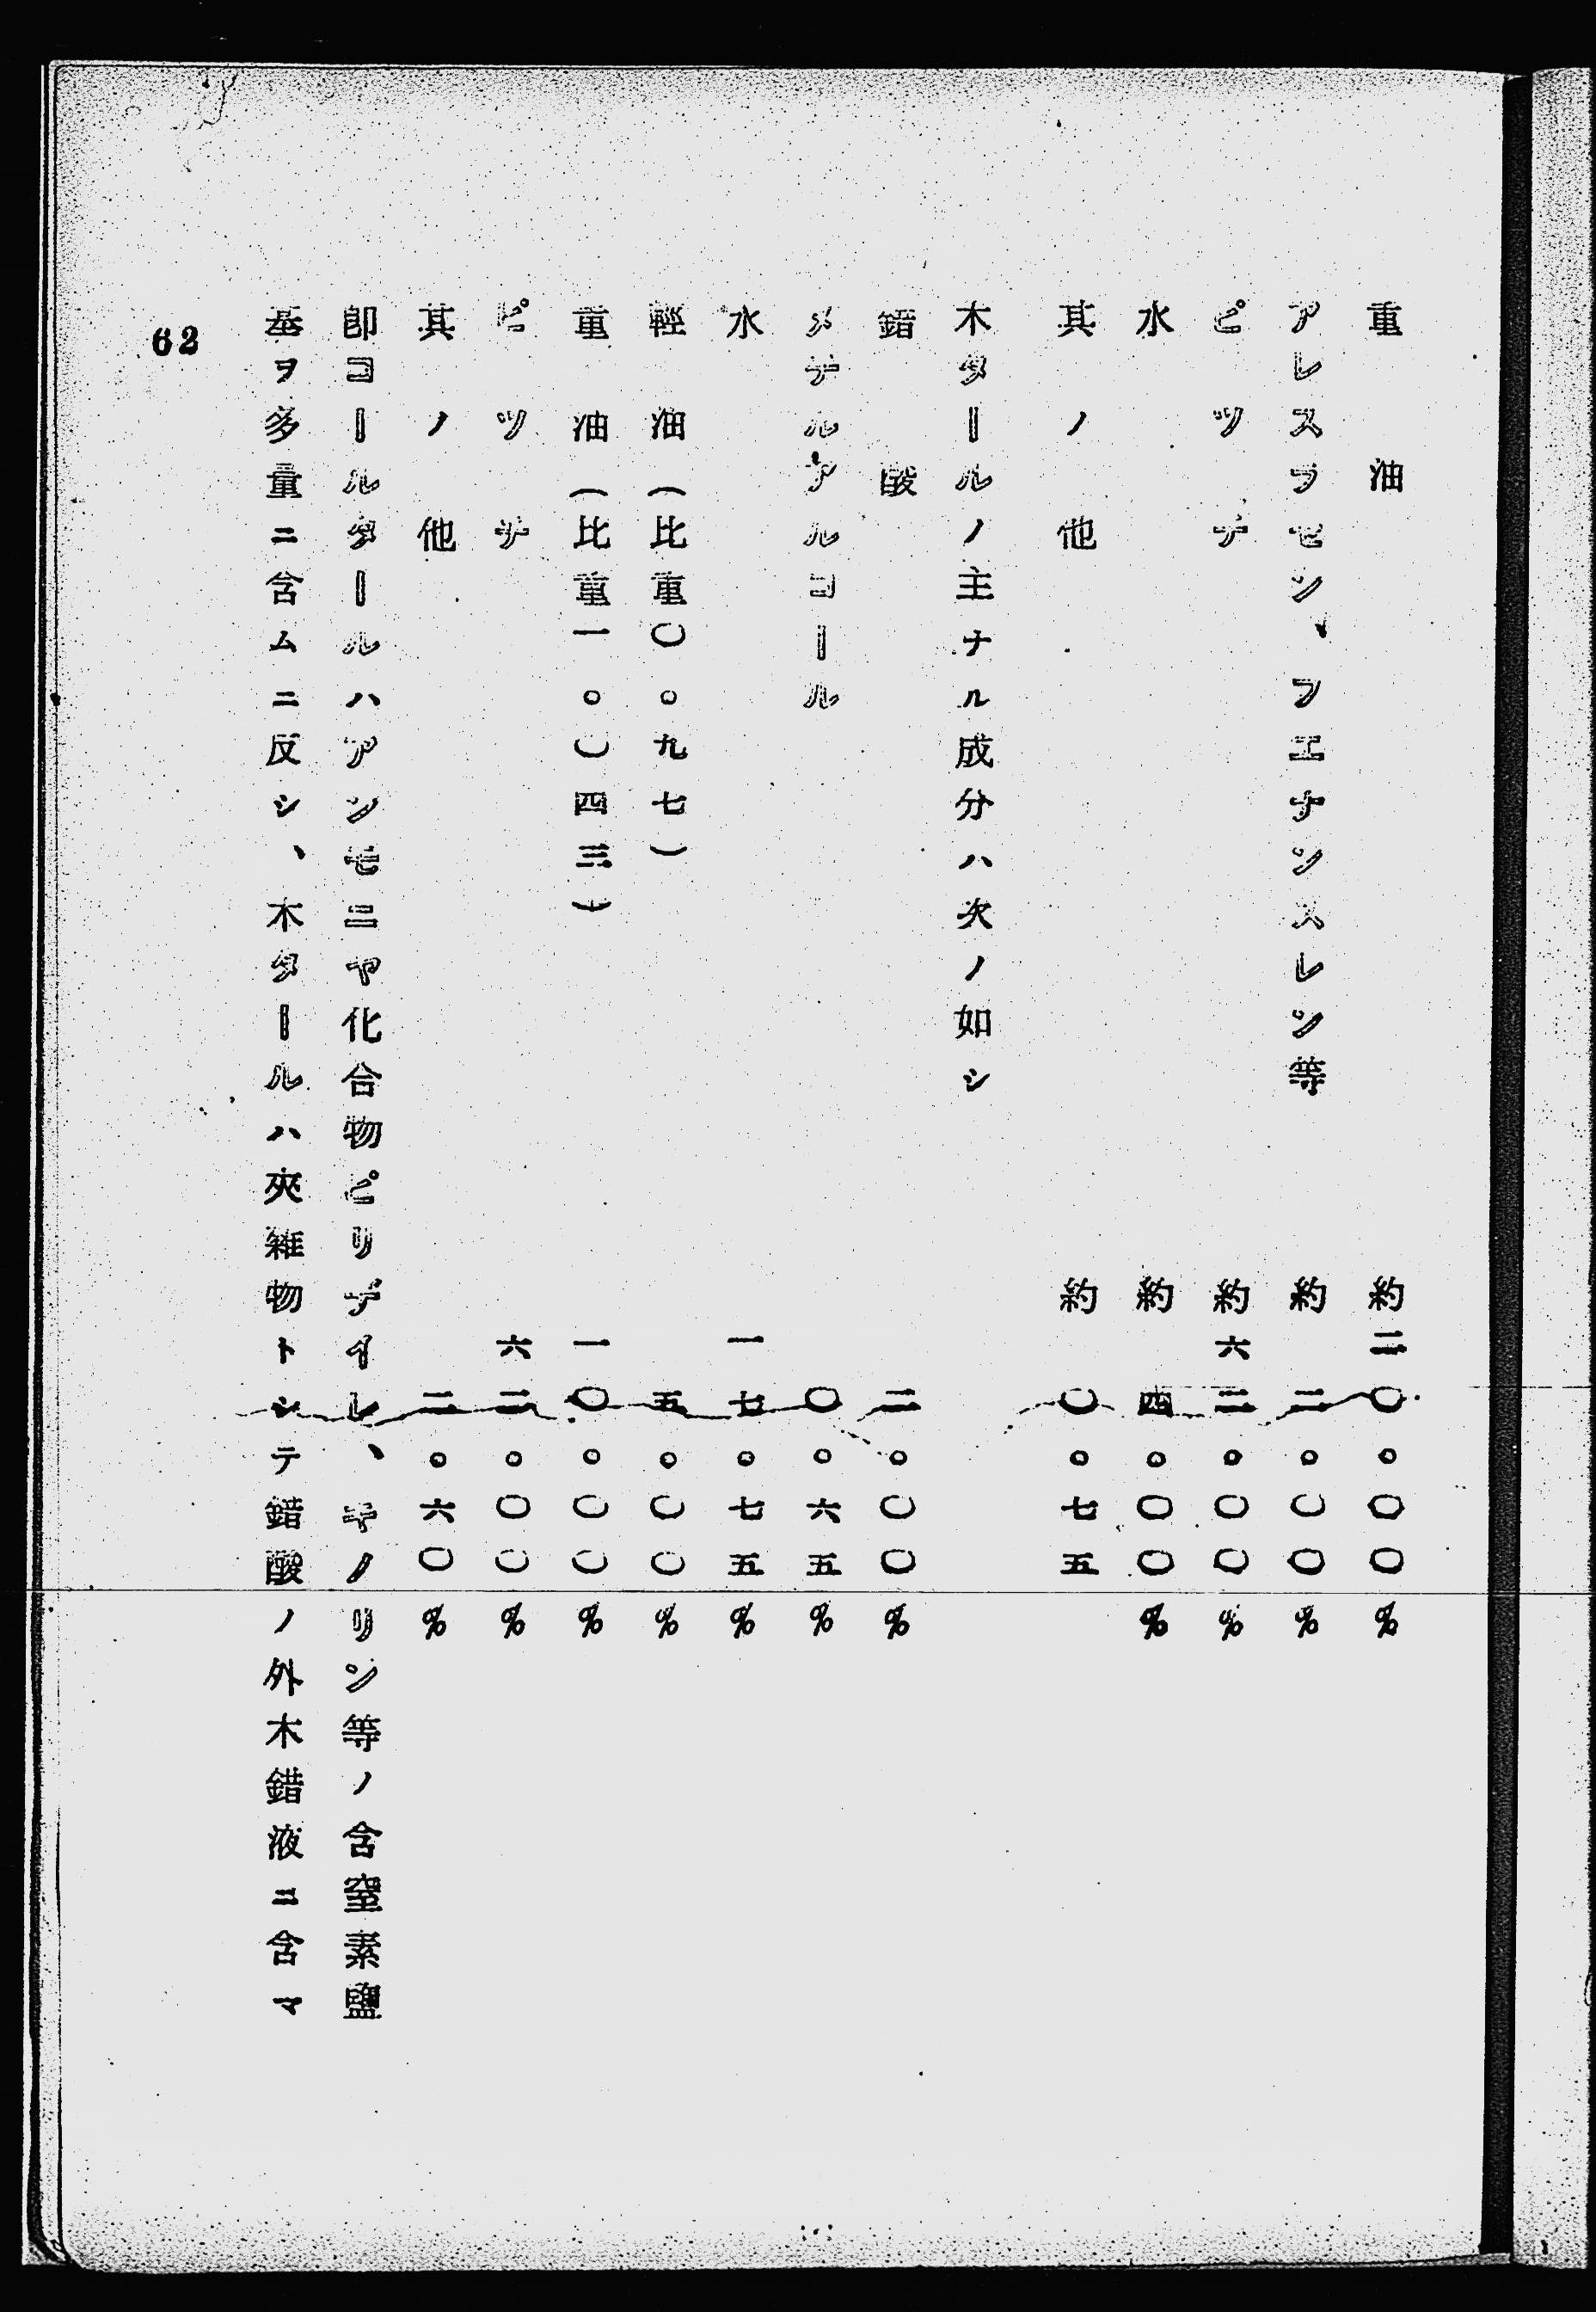 重油 約二〇。〇〇%
アレスラセン、フエナンスレン等 約二。〇〇%
ピツチ 約六二。〇〇%
水 約四。〇〇%
其ノ他 約〇。七五
木タールノ主ナル成分ハ次ノ如シ
錯酸 二。〇〇%
メチルアルコール 〇。六五%
水 一七。七五%
輕油(比重〇。九七) 五。〇〇%
重油(比重一。〇四三) 一〇。〇〇%
ピツチ 六二。〇〇%
其ノ他 二。六〇%
卽コールタールハアンモニヤ化合物ピリヂイレ、キノリン等ノ含窒素鹽
基ヲ多量ニ含ムニ反シ、木タールハ夾雜物トシテ錯酸ノ外木錯液ニ含マ
62